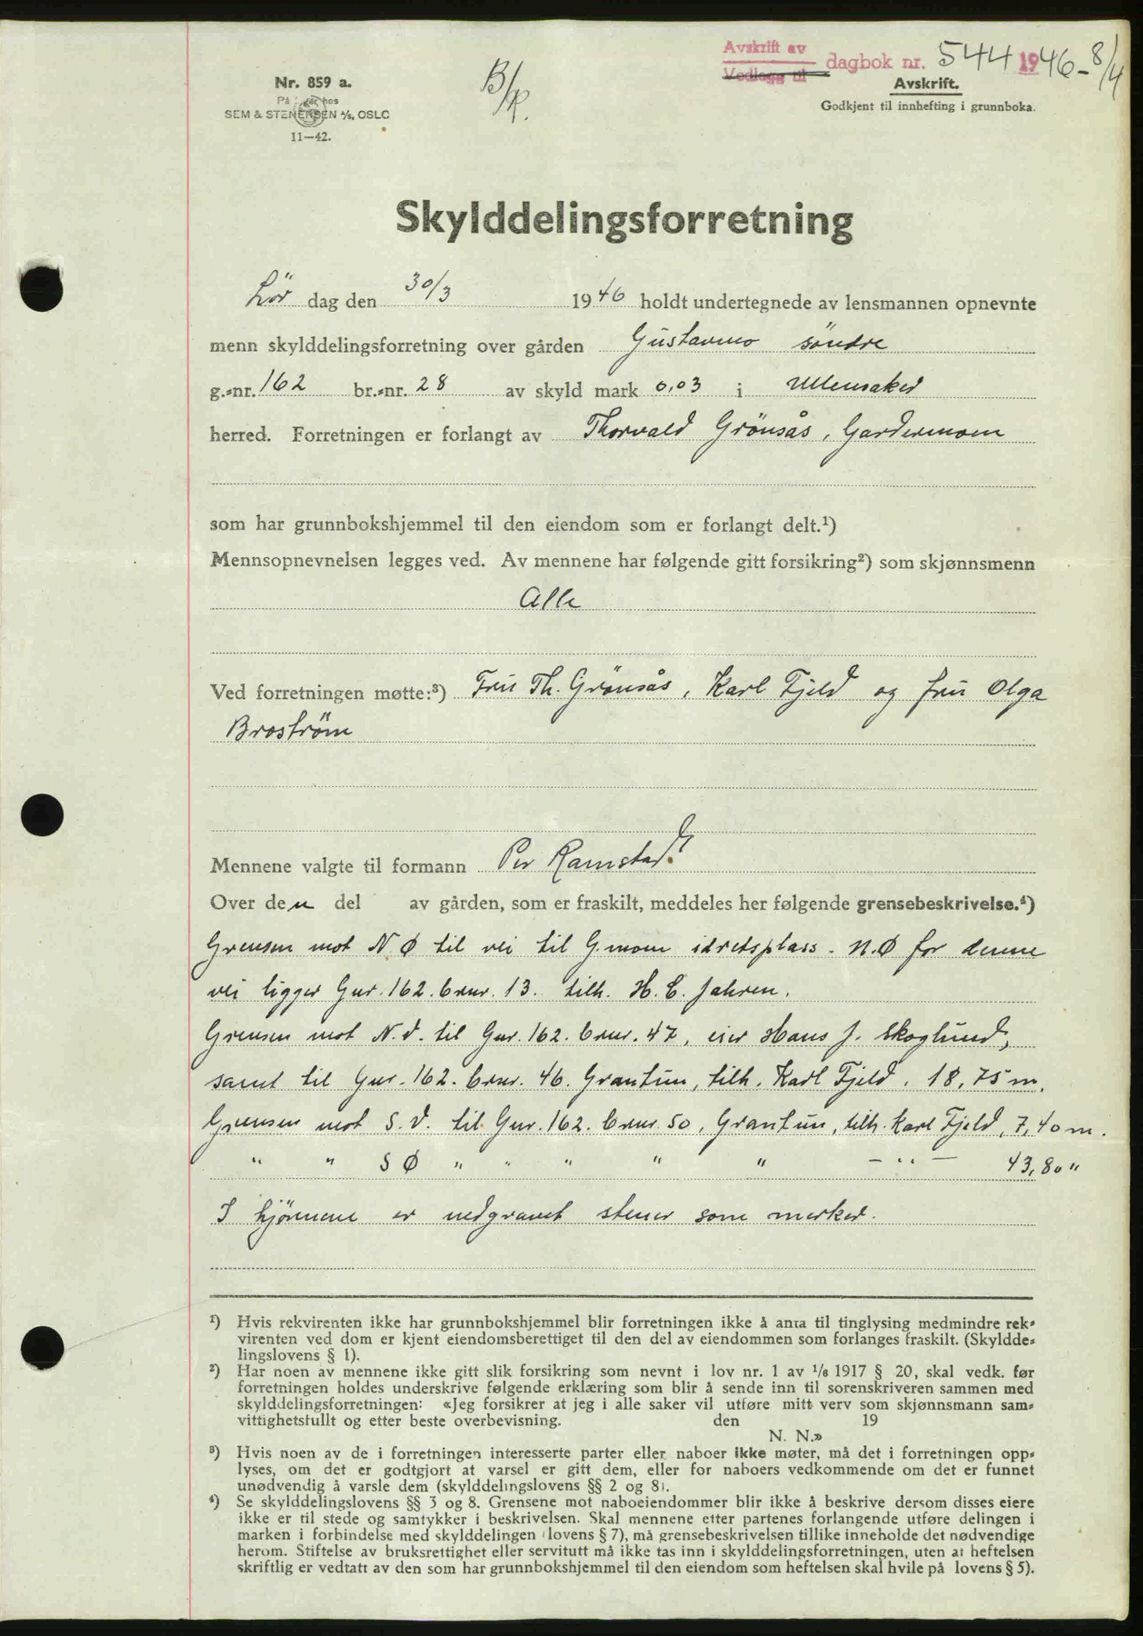 Avskrift av
Vedlegg til dagbok nr. 544 1946-8/4
Nr. 859 a.
Avskrift.
B/
På hos
Godkjent til innhefting i grunnboka.
SEM & STENERSEN A/S, OSLO
11—42.
Skylddelingsforretning
Lör dag den 30/3 1946 holdt undertegnede av lensmannen opnevnte
menn skylddelingsforretning over gården Gustavmo söndre
g.-nr. 162 br.-nr. 28 av skyld mark 0,03 i Ullensaker
herred. Forretningen er forlangt av Thorvald Grönsås, Gardermoen
som har grunnbokshjemmel til den eiendom som er forlangt delt.¹)
Mennsopnevnelsen legges ved. Av mennene har følgende gitt forsikring²) som skjønnsmenn
Alle
Ved forretningen møtte:³) Fru Th. Grönsås, Karl Fjeld og fru Olga
Broström
Mennene valgte til formann Per Ramstad
Over den del av gården, som er fraskilt, meddeles her følgende grensebeskrivelse.⁴)
Grensen mot N Ø til vei til G.moen idretsplass. N.Ø for denne
vei ligger Gnr. 162. brnr. 13. tilh. H. C. Jahren.
Grensen mot N.V. til Gnr. 162. brnr. 47, eier Hans J. Skoglund,
samt til Gnr. 162. brnr. 46. Grantun, tilh. Karl Fjeld. 18,75 m.
Grensen mot S.V. til Gnr. 162. brnr. 50, Grantun, tilh. Karl Fjeld, 7,40 m.
" " S Ø " " " " " — " — 43,80 "
I hjörnene er nedgravet stener som merker.
¹) Hvis rekvirenten ikke har grunnbokshjemmel blir forretningen ikke å anta til tinglysing medmindre rek-
virenten ved dom er kjent eiendomsberettiget til den del av eiendommen som forlanges fraskilt. (Skyldde-
lingslovens § 1).
²) Har noen av mennene ikke gitt slik forsikring som nevnt i lov nr. 1 av 1/6 1917 § 20, skal vedk. før
forretningen holdes underskrive følgende erklæring som blir å sende inn til sorenskriveren sammen med
skylddelingsforretningen: «Jeg forsikrer at jeg i alle saker vil utføre mitt verv som skjønnsmann sam-
vittighetsfullt og etter beste overbevisning. den 19
N. N.»
³) Hvis noen av de i forretningen interesserte parter eller naboer ikke møter, må det i forretningen opp-
lyses, om det er godtgjort at varsel er gitt dem, eller for naboers vedkommende om det er funnet
unødvendig å varsle dem (skylddelingslovens §§ 2 og 8).
⁴) Se skylddelingslovens §§ 3 og 8. Grensene mot naboeiendommer blir ikke å beskrive dersom disses eiere
ikke er til stede og samtykker i beskrivelsen. Skal mennene etter partenes forlangende utføre delingen i
marken i forbindelse med skylddelingen (lovens § 7), må grensebeskrivelsen tillike inneholde det nødvendige
herom. Stiftelse av bruksrettighet eller servitutt må ikke tas inn i skylddelingsforretningen, uten at heftelsen
skriftlig er vedtatt av den som har grunnbokshjemmel til den eiendom som heftelsen skal hvile på (lovens § 5).